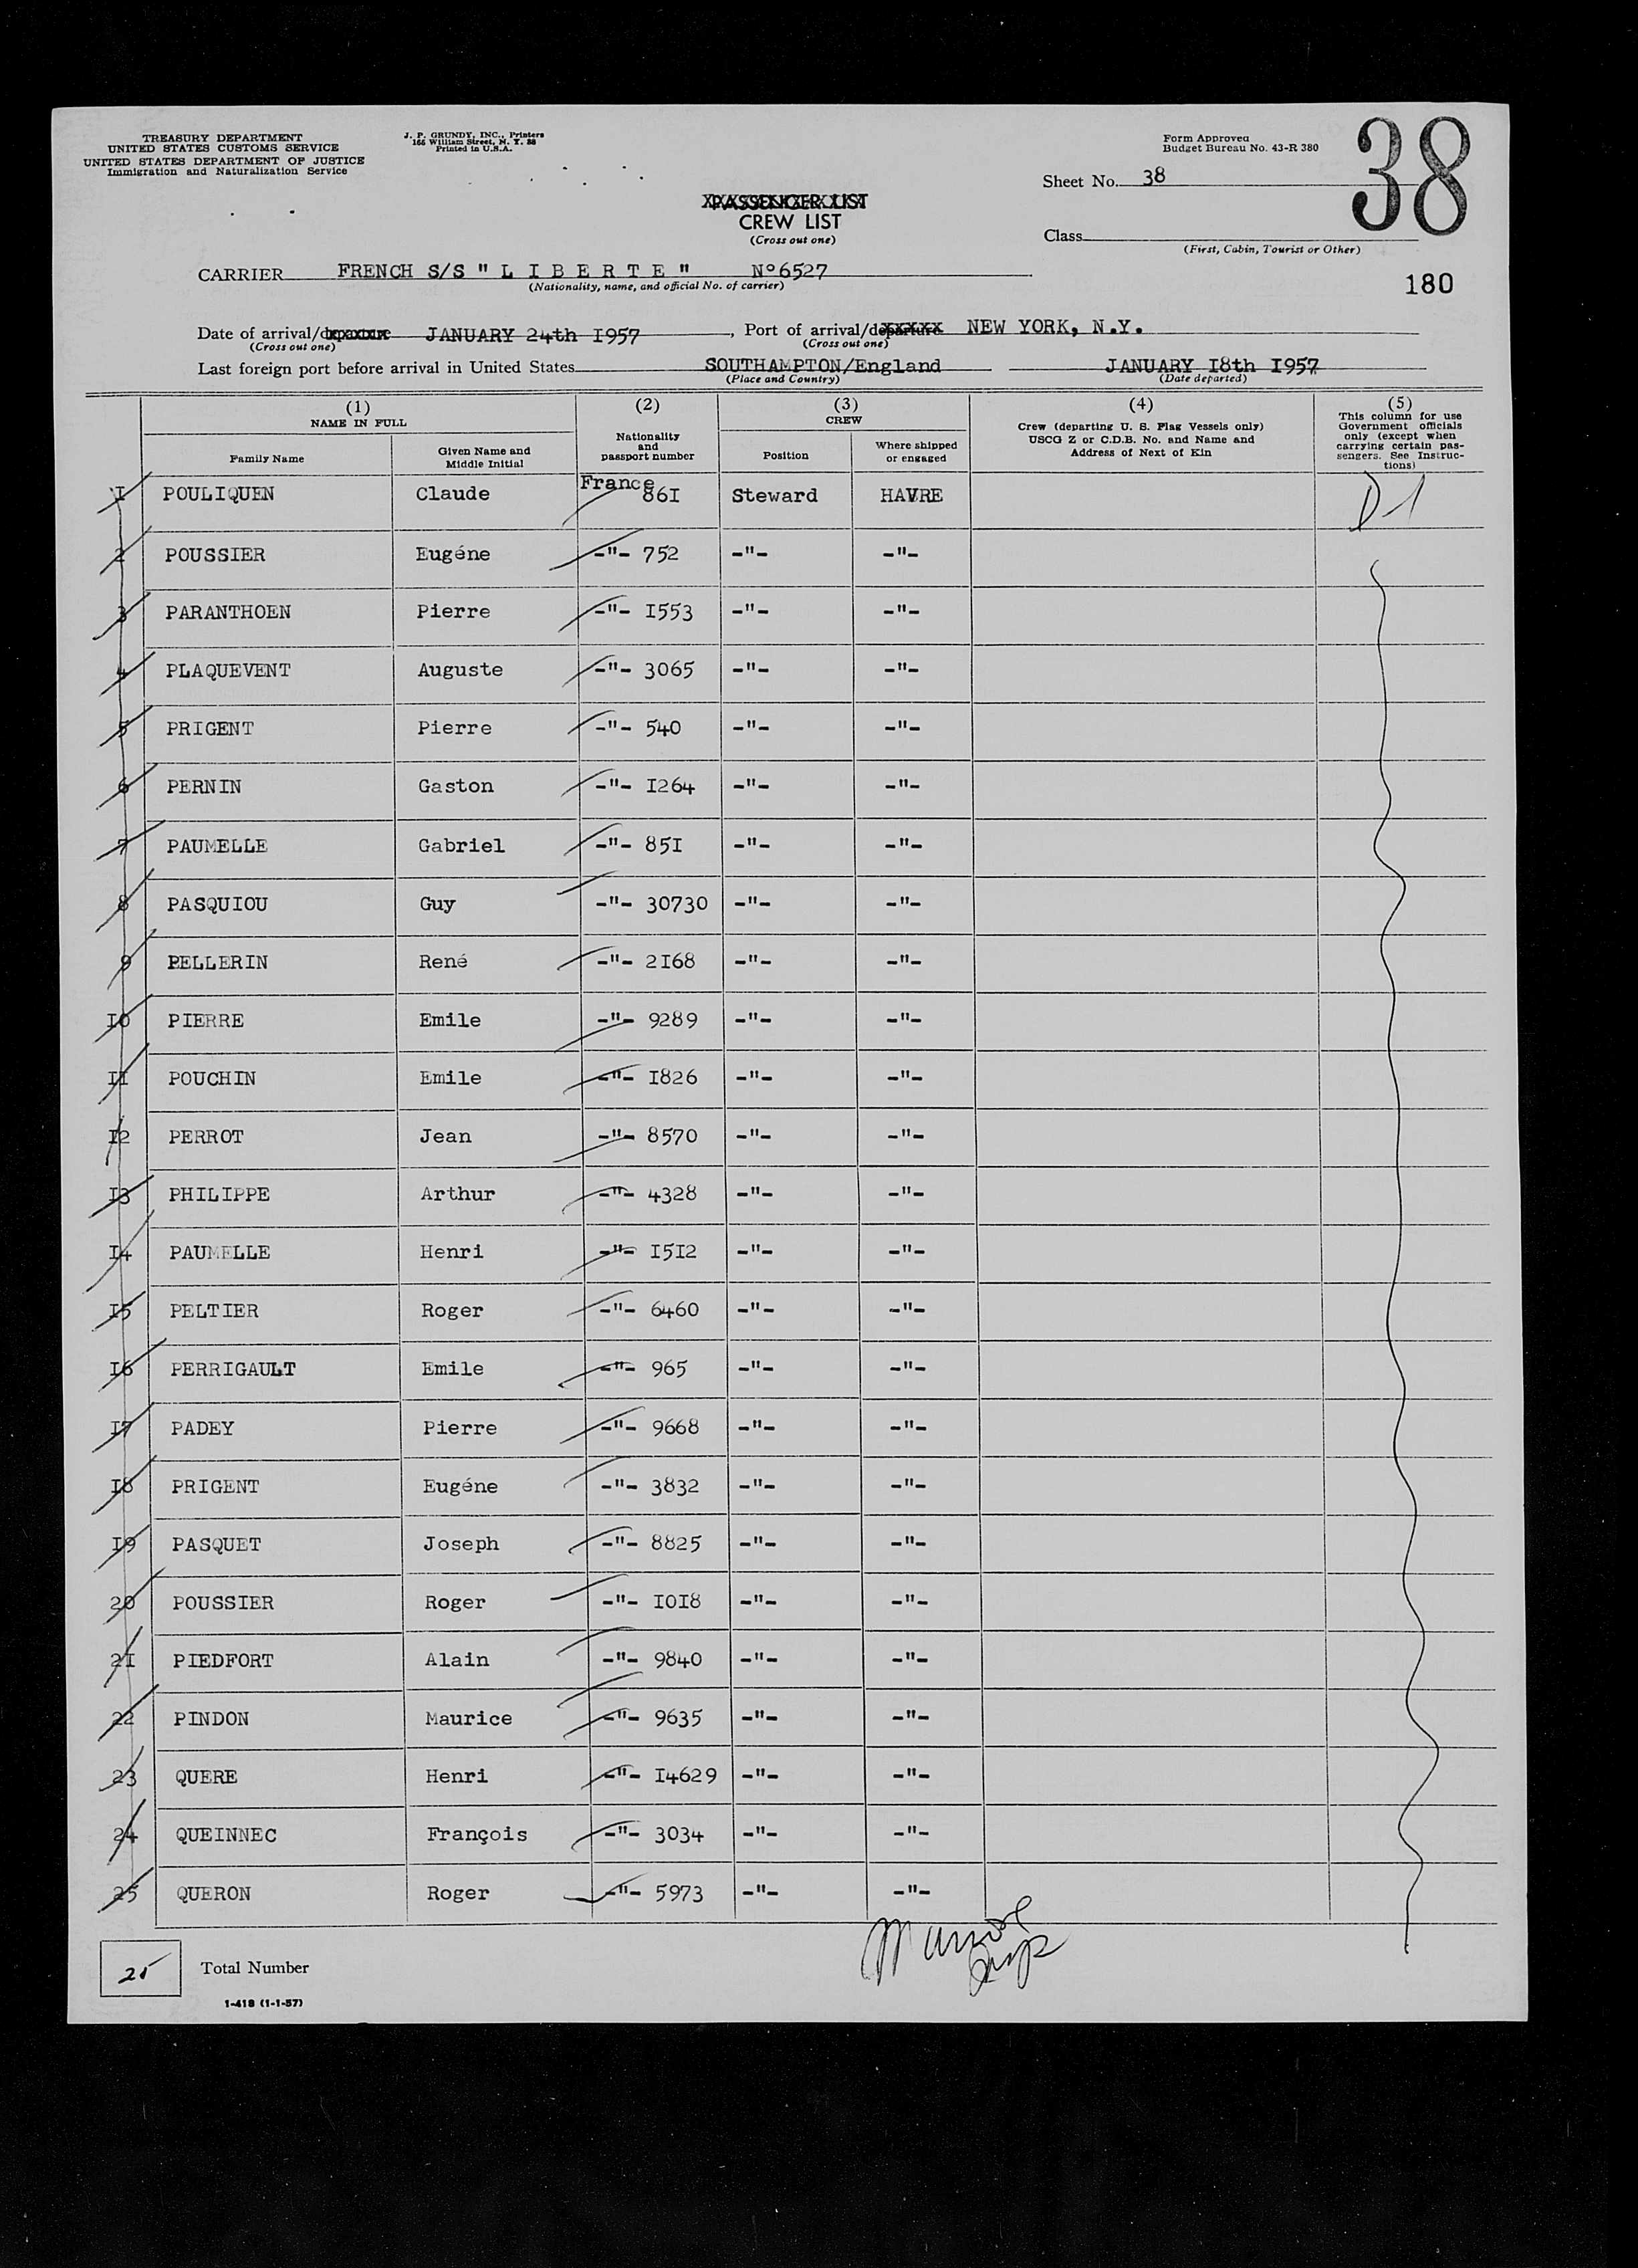 TREASURY DEPARTMENT
UNITED STATES CUSTOMS SERVICE
UNITED STATES DEPARTMENT OF JUSTICE
Immigration and Naturalization Service
J. P. GRUNDY, INC., Printers
166 William Street, N. Y. 38
Printed in U.S.A.
Form Approved
Budget Bureau No. 43-R 380
38
Sheet No. 38
PASSENGER LIST
CREW LIST
(Cross out one)
Class
(First, Cabin, Tourist or Other)
CARRIER FRENCH S/S "L I B E R T E" N°6527
(Nationality, name, and official No. of carrier)
180
Date of arrival/departure JANUARY 24th I957, Port of arrival/departure NEW YORK, N.Y.
(Cross out one) (Cross out one)
Last foreign port before arrival in United States SOUTHAMPTON/England JANUARY I8th I957
(Place and Country) (Date departed)
(1) NAME IN FULL (2) (3) CREW (4) (5)
Family Name Given Name and Middle Initial Nationality and passport number Position Where shipped or engaged Crew (departing U. S. Flag Vessels only) USCG Z or C.D.B. No. and Name and Address of Next of Kin This column for use Government officials only (except when carrying certain passengers. See Instructions)
I POULIQUEN Claude France 86I Steward HAVRE D-1
2 POUSSIER Eugéne -"- 752 -"- -"-
3 PARANTHOEN Pierre -"- I553 -"- -"-
4 PLAQUEVENT Auguste -"- 3065 -"- -"-
5 PRIGENT Pierre -"- 540 -"- -"-
6 PERNIN Gaston -"- I264 -"- -"-
7 PAUMELLE Gabriel -"- 85I -"- -"-
8 PASQUIOU Guy -"- 30730 -"- -"-
9 PELLERIN René -"- 2I68 -"- -"-
I0 PIERRE Emile -"- 9289 -"- -"-
II POUCHIN Emile -"- I826 -"- -"-
I2 PERROT Jean -"- 8570 -"- -"-
I3 PHILIPPE Arthur -"- 4328 -"- -"-
I4 PAUMELLE Henri -"- I5I2 -"- -"-
I5 PELTIER Roger -"- 6460 -"- -"-
I6 PERRIGAULT Emile -"- 965 -"- -"-
I7 PADEY Pierre -"- 9668 -"- -"-
I8 PRIGENT Eugéne -"- 3832 -"- -"-
I9 PASQUET Joseph -"- 8825 -"- -"-
20 POUSSIER Roger -"- I0I8 -"- -"-
2I PIEDFORT Alain -"- 9840 -"- -"-
22 PINDON Maurice -"- 9635 -"- -"-
23 QUERE Henri -"- I4629 -"- -"-
24 QUEINNEC François -"- 3034 -"- -"-
25 QUERON Roger -"- 5973 -"- -"-
25 Total Number
1-418 (1-1-57)